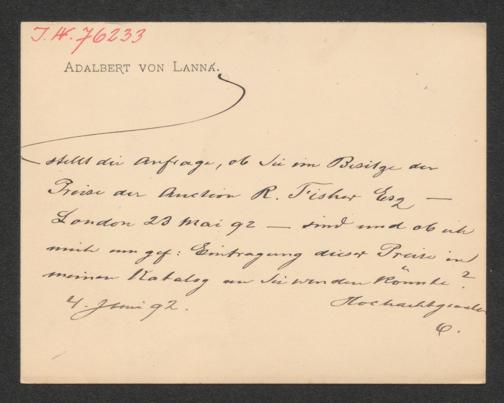 I.N. 76233
ADALBERT VON LANNA.
stellt die Anfrage, ob Sie im Besitze der
Preise der Auction R. Fisher Esq —
London 23 Mai 92 — sind und ob ich
mich um gef: Eintragung dieser Preise in
meinen Katalog an Sie wenden könnte?
4. Juni 92.
Hochachtungsvoll